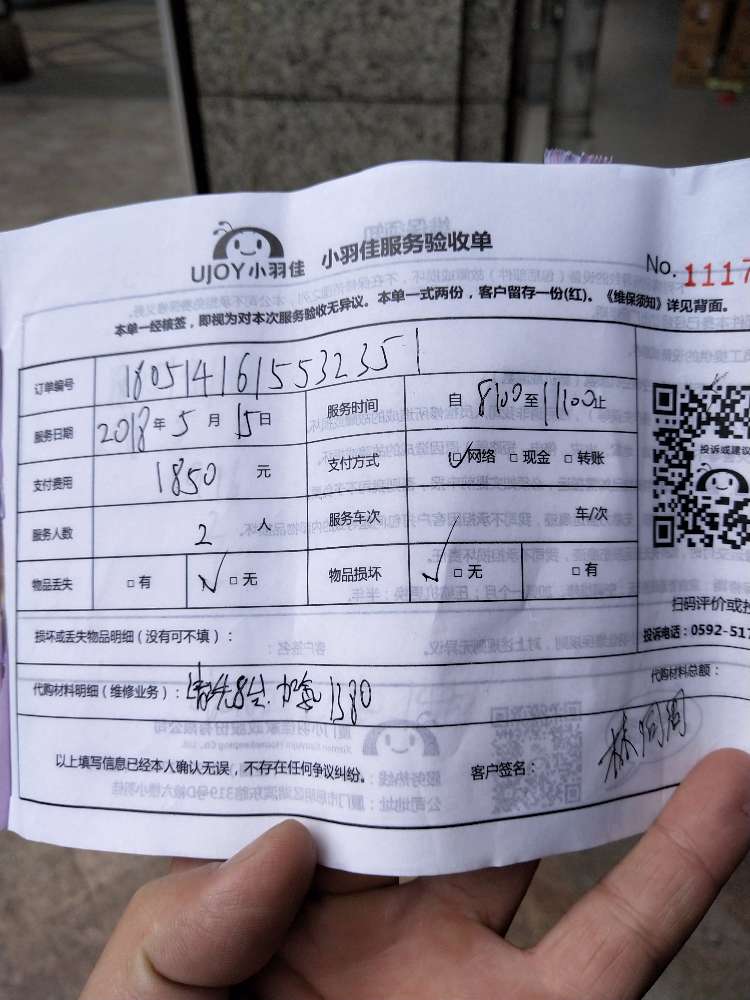 UJOY小羽佳 小羽佳服务验收单
No. 1117
本单一经核签，即视为对本次服务验收无异议。本单一式两份，客户留存一份(红)。《维保须知》详见背面。
订单编号 180514161553235
服务日期 2018 年 5 月 15 日 服务时间 自 8:00 至 11:00 止
支付费用 1850 元 支付方式 □ 网络 □ 现金 □ 转账
服务人数 2 人 服务车次 车/次
物品丢失 □ 有 □ 无 物品损坏 □ 无 □ 有
投诉或建议
扫码评价或投
投诉电话：0592-517
损坏或丢失物品明细（没有可不填）：
代购材料明细（维修业务）： 加氟 1380
代购材料总额：
以上填写信息已经本人确认无误，不存在任何争议纠纷。 客户签名：